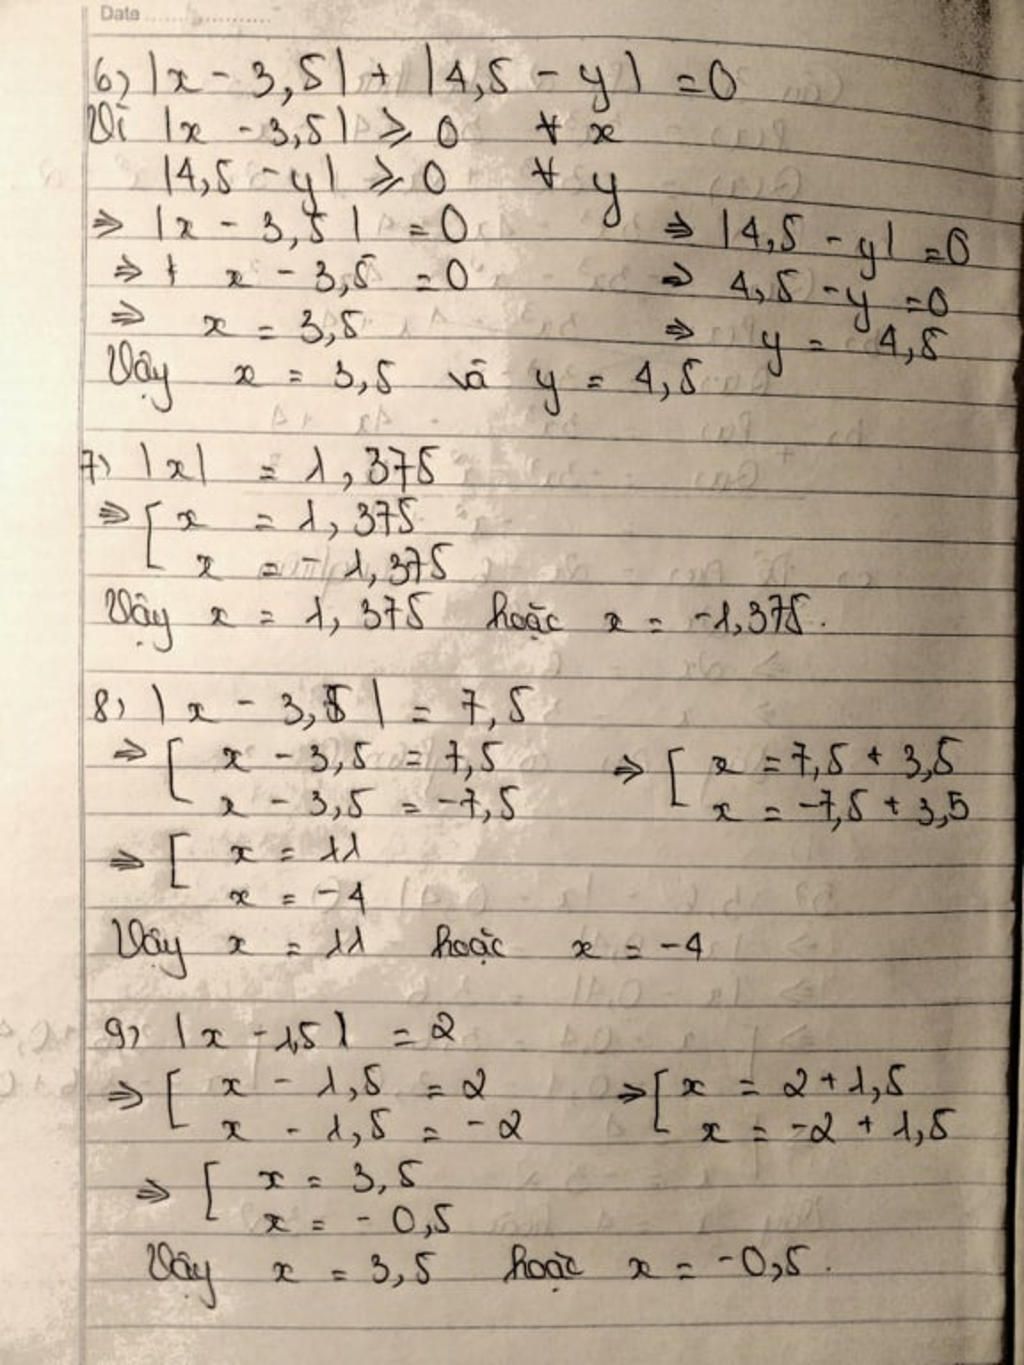 Date
6) |x - 3,5| + |4,5 - y| = 0
Vì |x - 3,5| ⩾ 0 ∀ x
|4,5 - y| ⩾ 0 ∀ y
⇒ |x - 3,5| = 0 ⇒ |4,5 - y| = 0
⇒ x - 3,5 = 0 ⇒ 4,5 - y = 0
⇒ x = 3,5 ⇒ y = 4,5
Vậy x = 3,5 và y = 4,5
7) |x| = 1,375
⇒ [ x = 1,375
x = - 1,375
Vậy x = 1,375 hoặc x = -1,375.
8) |x - 3,5| = 7,5
⇒ [ x - 3,5 = 7,5 ⇒ [ x = 7,5 + 3,5
x - 3,5 = -7,5 x = -7,5 + 3,5
⇒ [ x = 11
x = -4
Vậy x = 11 hoặc x = -4
9) |x - 1,5| = 2
⇒ [ x - 1,5 = 2 ⇒ [ x = 2 + 1,5
x - 1,5 = -2 x = -2 + 1,5
⇒ [ x = 3,5
x = - 0,5
Vậy x = 3,5 hoặc x = -0,5.